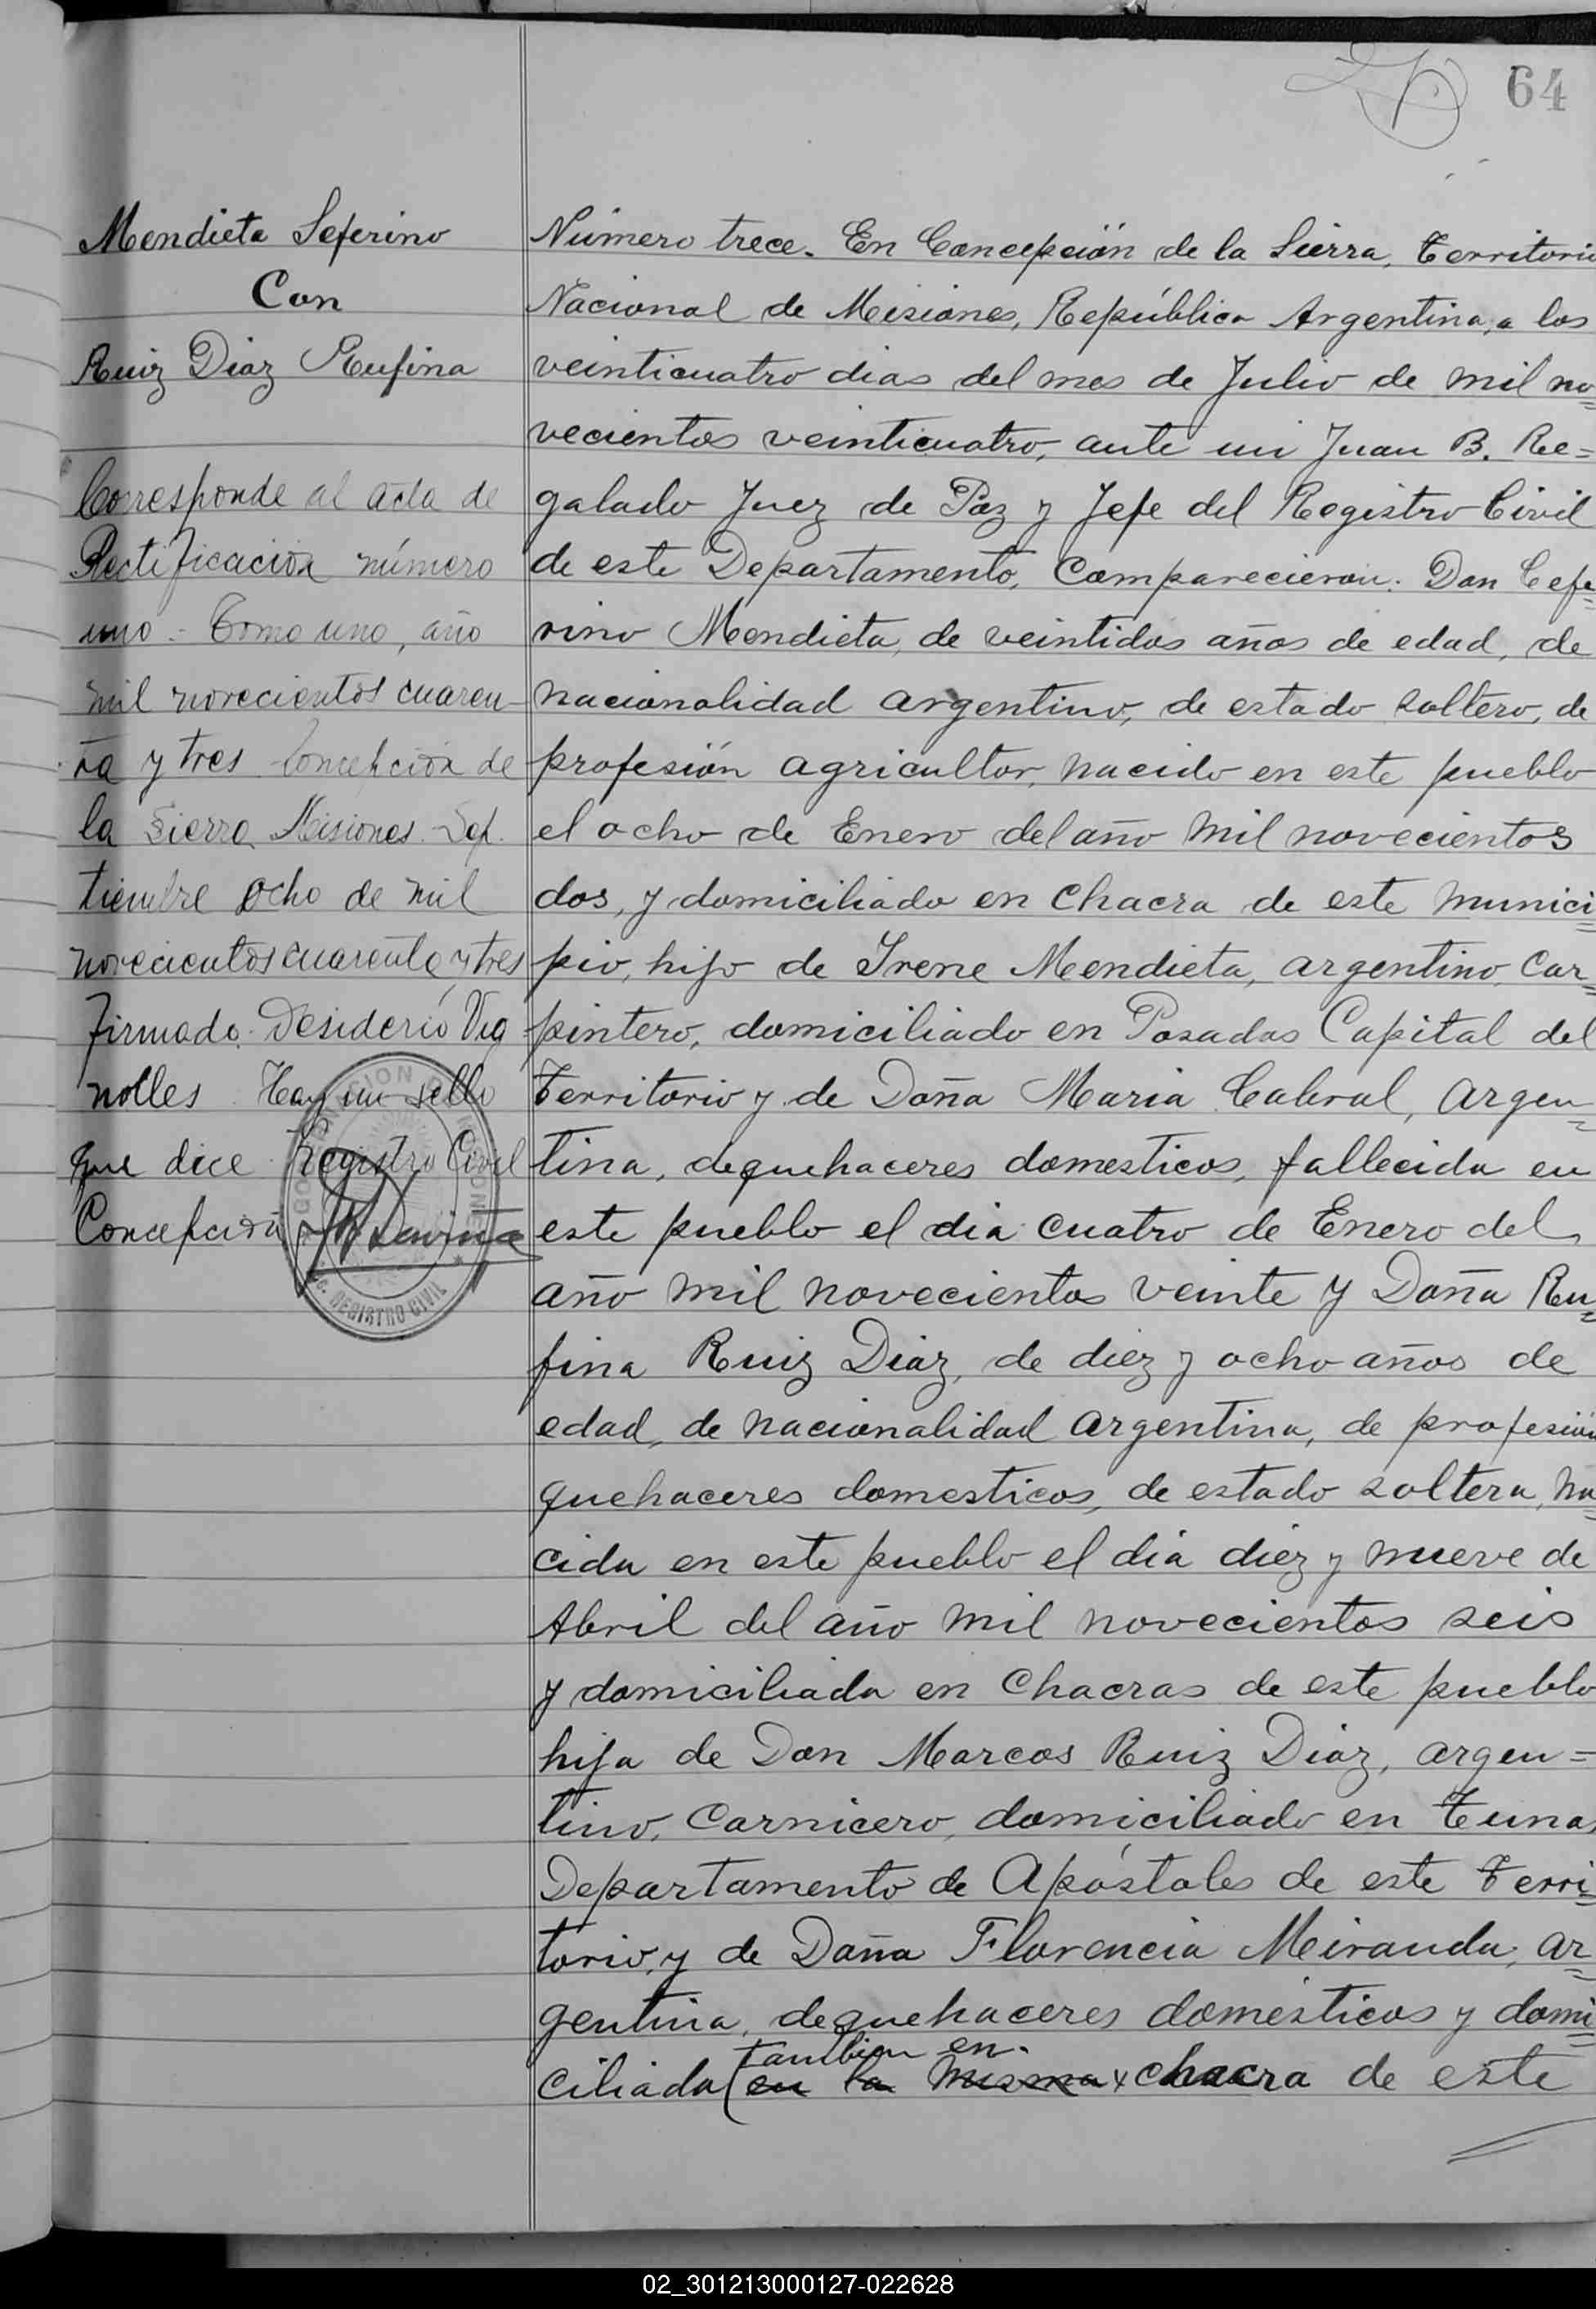 64
Mendieta Seferino
Con
Ruiz Diaz Rufina
Corresponde al acta de
Rectificación número
uno - Tomo uno, año
mil novecientos cuaren-
ta y tres Concepción de
la Sierra Misiones - Sep.
tiembre ocho de mil
novecientos cuarenta y tres
Firmado. Desiderio Vig
nolles Hay un sello
que dice Registro Civil
Concepción
REGISTRO CIVIL
Número trece. En Concepción de la Sierra, Territorio
Nacional de Misiones, República Argentina, a los
veinticuatro dias del mes de Julio de mil no=
vecientos veinticuatro, ante mi Juan B. Re=
galado Juez de Paz y Jefe del Registro Civil
de este Departamento, Comparecieron: Don Cefe=
rino Mendieta, de veintidos años de edad, de
nacionalidad argentino, de estado soltero, de
profesión agricultor, nacido en este pueblo
el ocho de Enero del año mil novecientos
dos, y domiciliado en chacra de este munici=
pio, hijo de Irene Mendieta, argentino, Car=
pintero, domiciliado en Posadas Capital del
Territorio y de Doña Maria Cabral, argen=
tina, de quehaceres domesticos, fallecida en
este pueblo el dia cuatro de Enero del
año mil novecientos veinte y Doña Ru=
fina Ruiz Diaz, de diez y ocho años de
edad, de nacionalidad argentina, de profesión
quehaceres domesticos, de estado soltera, na=
cida en este pueblo el dia diez y nueve de
Abril del año mil novecientos seis
y domiciliada en chacras de este pueblo
hija de Don Marcos Ruiz Diaz, argen=
tino, Carnicero, domiciliado en Tuna,
Departamento de Apóstoles de este Terri=
torio, y de Doña Florencia Miranda, ar=
gentina, de quehaceres domésticos y domi=
tambien en
ciliada (en la misma x chacra de este
02_301213000127-022628